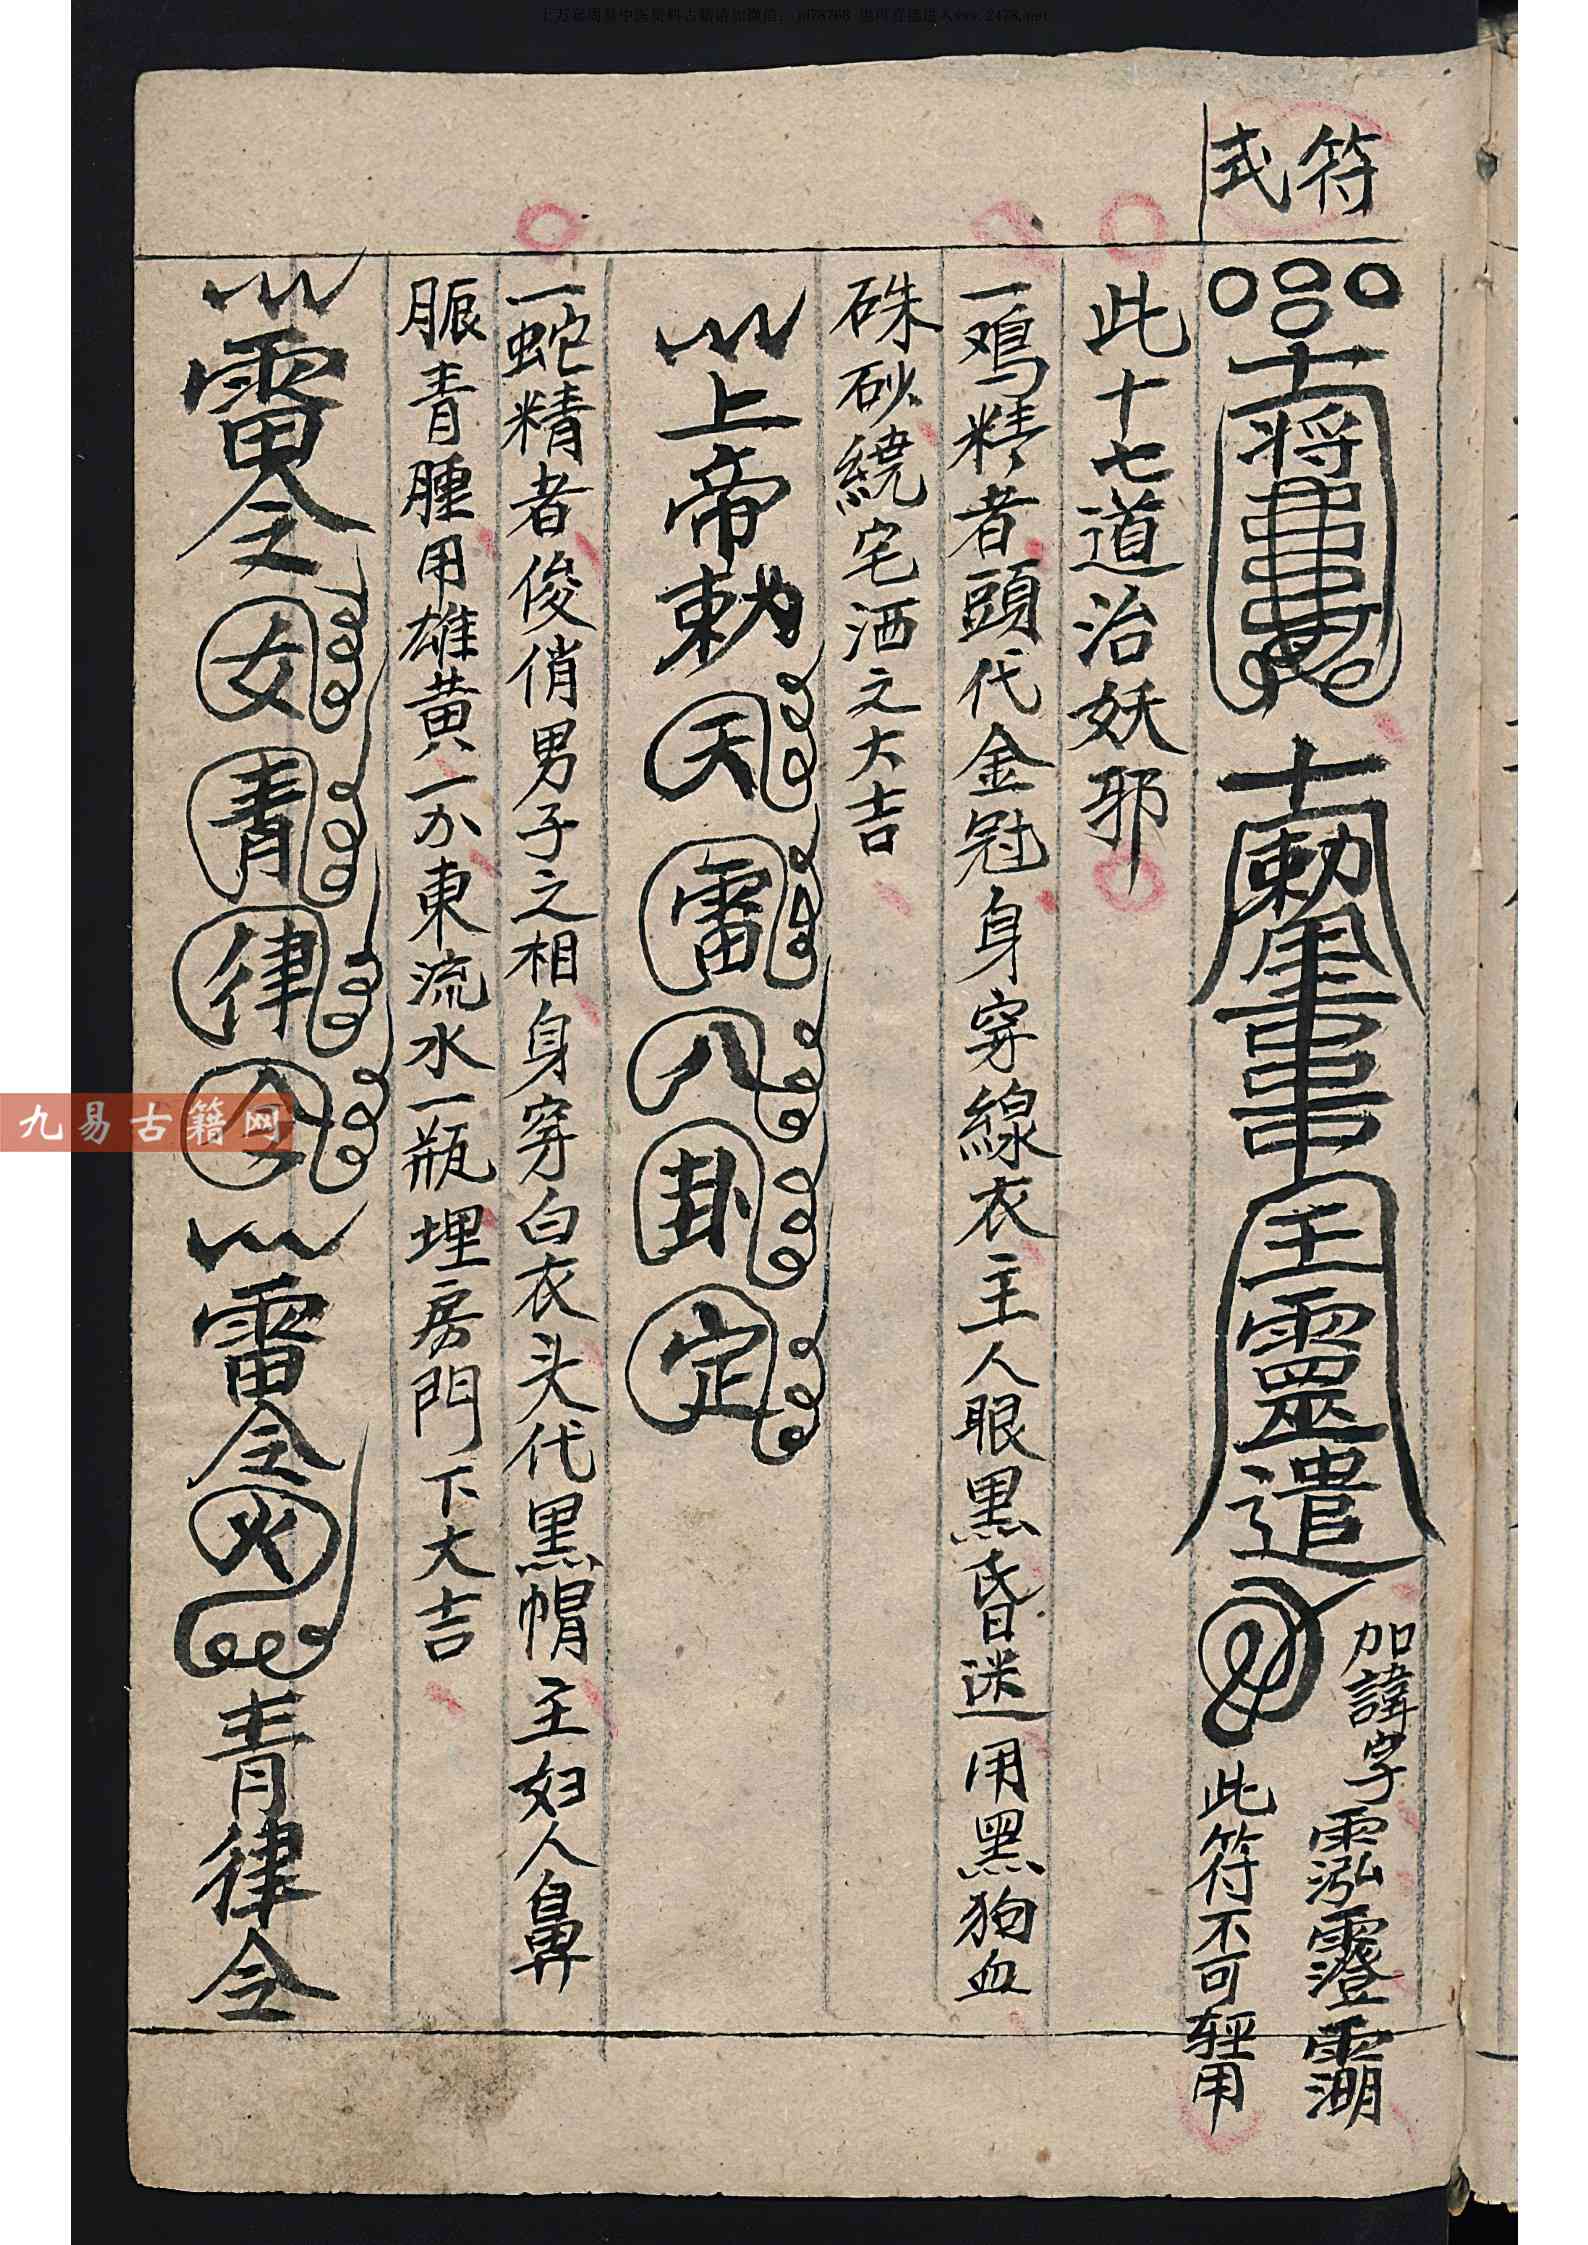 符式
將 勅令 王靈遣
加諱字
此符不可輕用
此十七道治妖邪
一鳮精者頭代金冠身穿線衣主人眼黒昏迷用黑狗血
硃砂繞宅洒之大吉
上帝勅天雷八卦定
一蛇精者俊俏男子之相身穿白衣头代黑帽主妇人鼻
脤青腫用雄黄一か東流水一瓶埋房門下大吉
雷令女青律令 雷令火青律令
九易古籍网